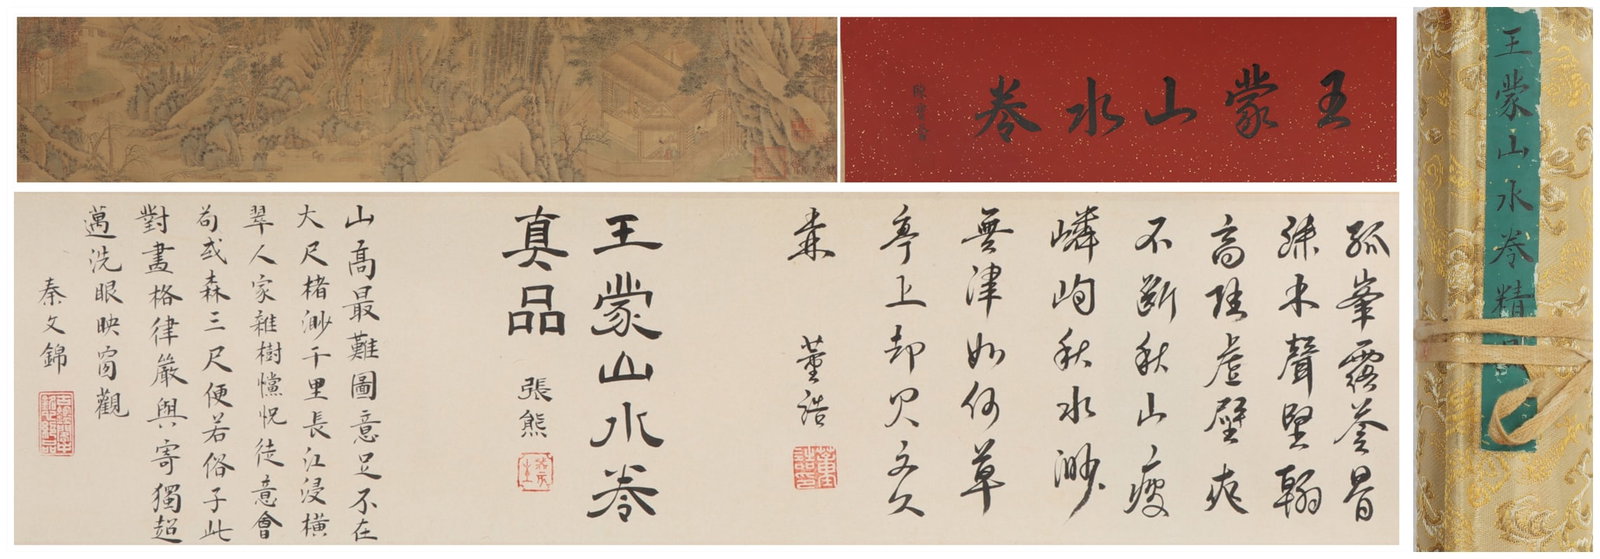 王蒙山水卷
王蒙山水卷精品
孤峯露苍骨
疎木聲堅翰
高陸虚壁爽
不断秋山瘦
嶙峋秋水渺
無津如何草
亭上却欠文
森
董誥
王蒙山水卷
真品
張熊
山高最難圖意足不在
大尺楮渺千里長江浸横
翠人家雜樹憶怳徒意會
苟或森三尺便若俗子此
對畫格律嚴與寄獨超
邁洗眼映窗觀
秦文錦